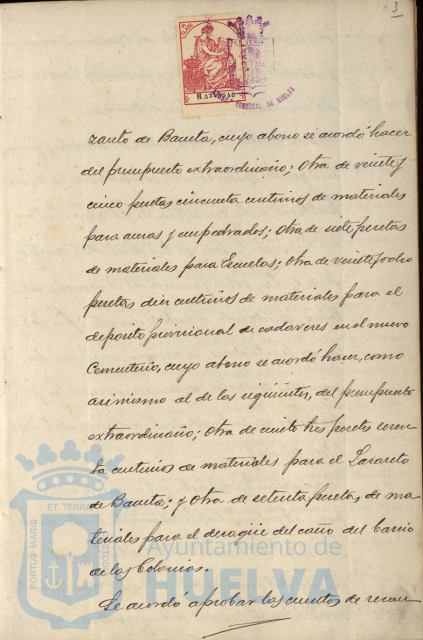 3
zareto de Bacuta, cuyo abono se acordó hacer
del presupuesto extraordinario; Otra de veinte y
cinco pesetas cincuenta centimos de materiales
para aceras y empedrados; Otra de siete pesetas
de materiales para Escuelas; Otra de veinte y ocho
pesetas diez centimos de materiales para el
deposito provisional de cadaveres en el nuevo
Cementerio, cuyo abono se acordó hacer, como
asimismo al de los siguientes, del presupuesto
extraordinario; Otra de ciento tres pesetas
ta centimos de materiales para el Lazareto
de Bacuta; y Otra de setenta pesetas de ma-
teriales para el desagüe del caño del barrio
de las Colonias.
Se acordó aprobar las cuentas de
PORTUS MARIS ET TERRAE CUSTODIA
Ayuntamiento de
HUELVA